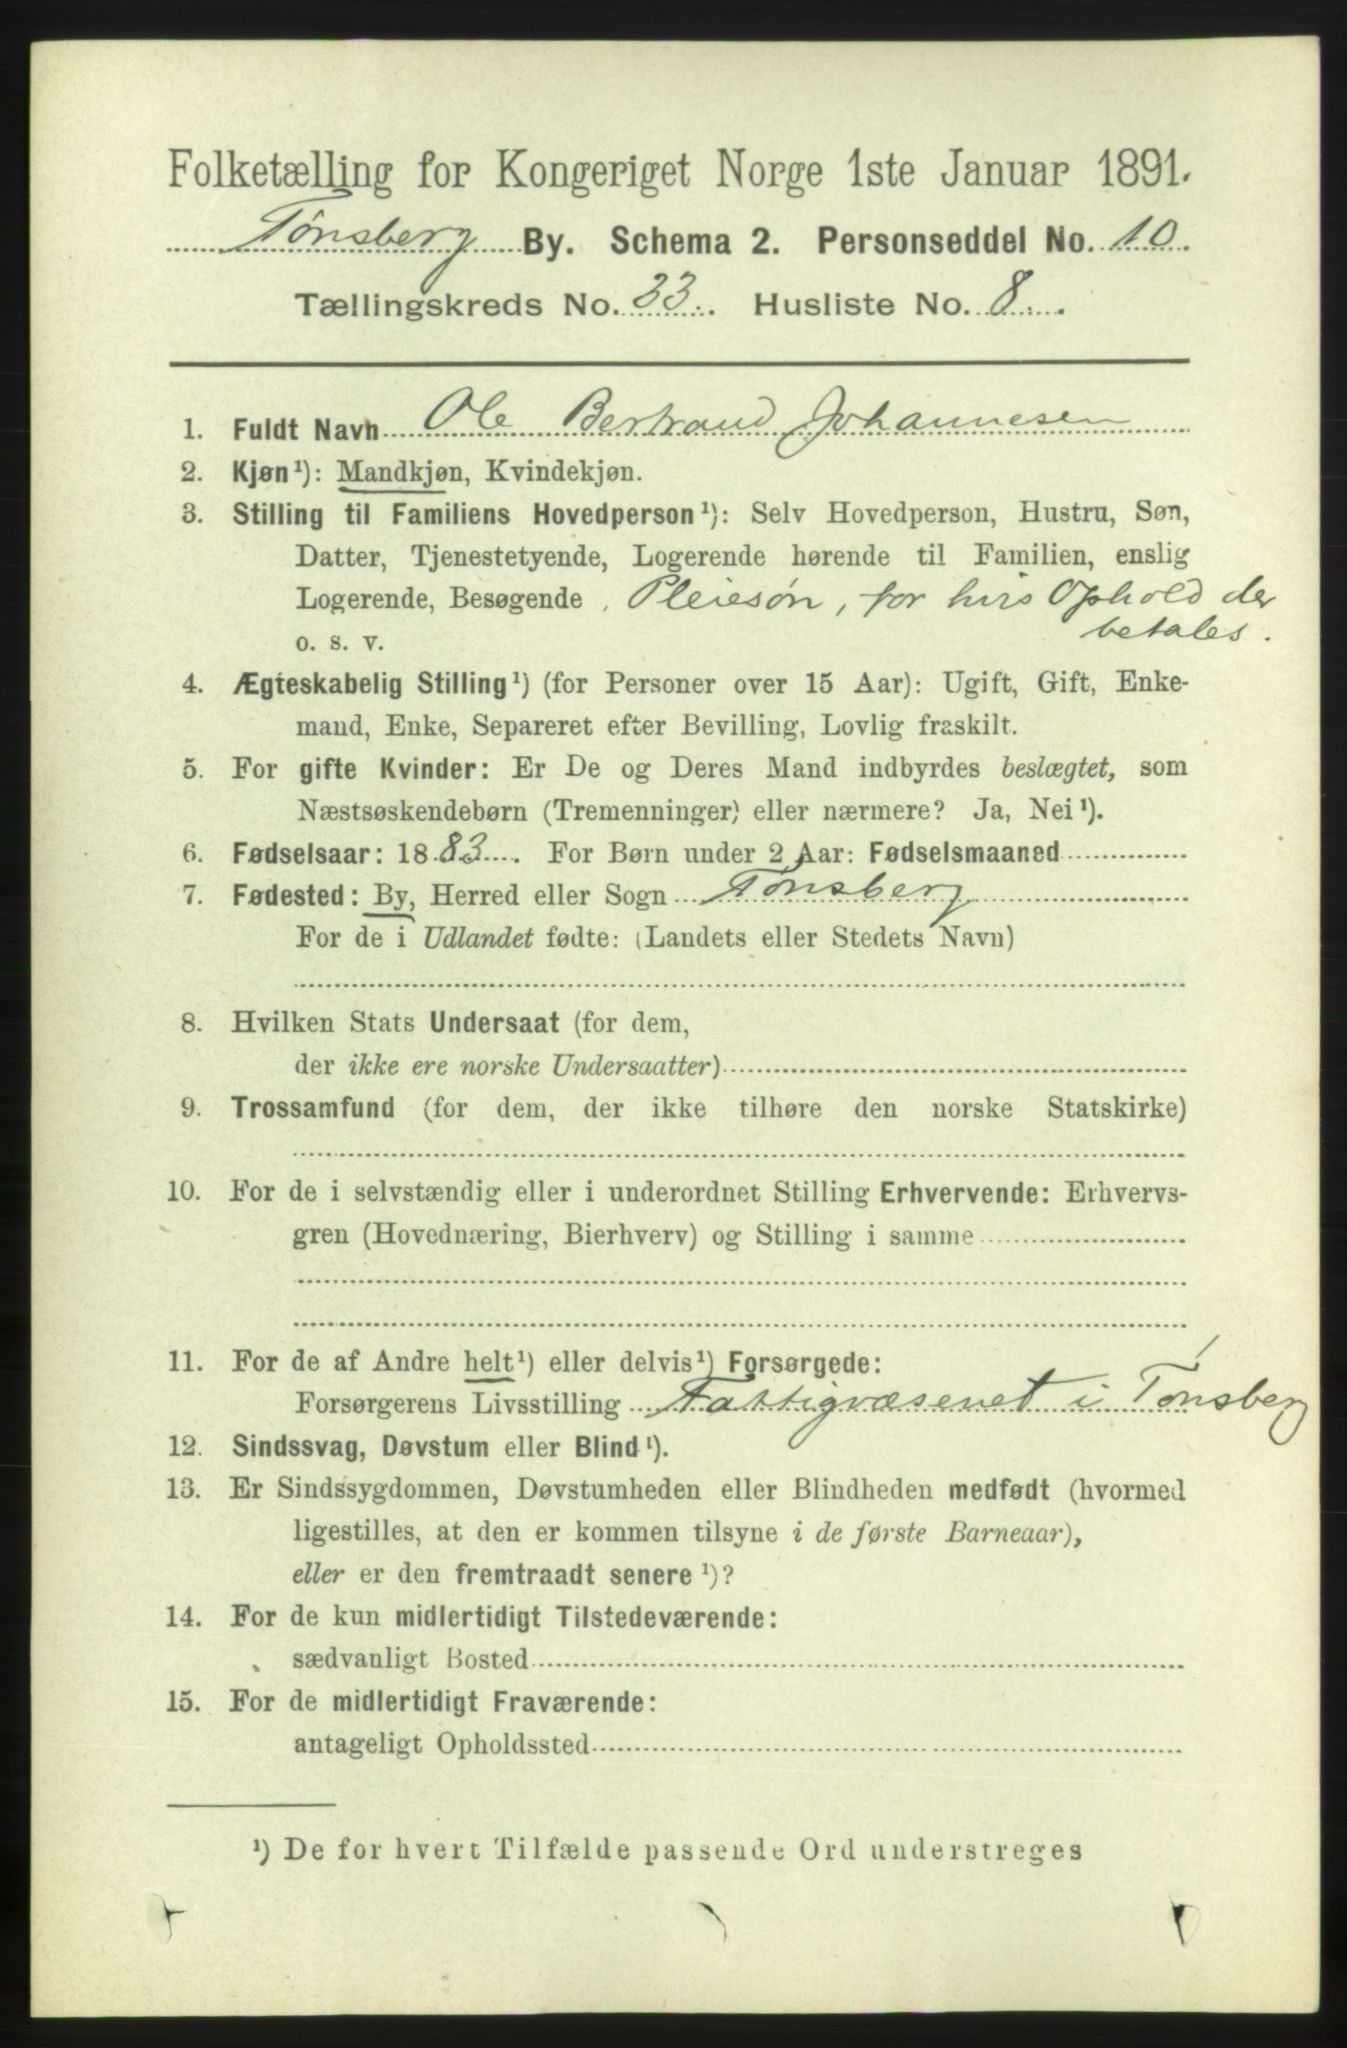 Folketælling for Kongeriget Norge 1ste Januar 1891.
Tønsberg By. Schema 2. Personseddel No. 10.
Tællingskreds No. 33. Husliste No. 8.
1. Fuldt Navn Ole Bertrand Johannesen
2. Kjøn¹): Mandkjøn, Kvindekjøn.
3. Stilling til Familiens Hovedperson¹): Selv Hovedperson, Hustru, Søn,
Datter, Tjenestetyende, Logerende hørende til Familien, enslig
Logerende, Besøgende, Pleiesøn, for hvis Ophold der
o. s. v. betales.
4. Ægteskabelig Stilling¹) (for Personer over 15 Aar): Ugift, Gift, Enke-
mand, Enke, Separeret efter Bevilling, Lovlig fraskilt.
5. For gifte Kvinder: Er De og Deres Mand indbyrdes beslægtet, som
Næstsøskendebørn (Tremenninger) eller nærmere? Ja, Nei¹).
6. Fødselsaar: 1883. For Børn under 2 Aar: Fødselsmaaned
7. Fødested: By, Herred eller Sogn Tønsberg
For de i Udlandet fødte: (Landets eller Stedets Navn)
8. Hvilken Stats Undersaat (for dem,
der ikke ere norske Undersaatter)
9. Trossamfund (for dem, der ikke tilhøre den norske Statskirke)
10. For de i selvstændig eller i underordnet Stilling Erhvervende: Erhvervs-
gren (Hovednæring, Bierhverv) og Stilling i samme
11. For de af Andre helt¹) eller delvis¹) Forsørgede:
Forsørgerens Livsstilling Fattigvæsenet i Tønsberg
12. Sindssvag, Døvstum eller Blind¹).
13. Er Sindssygdommen, Døvstumheden eller Blindheden medfødt (hvormed
ligestilles, at den er kommen tilsyne i de første Barneaar),
eller er den fremtraadt senere¹)?
14. For de kun midlertidigt Tilstedeværende:
sædvanligt Bosted
15. For de midlertidigt Fraværende:
antageligt Opholdssted
¹) De for hvert Tilfælde passende Ord understreges